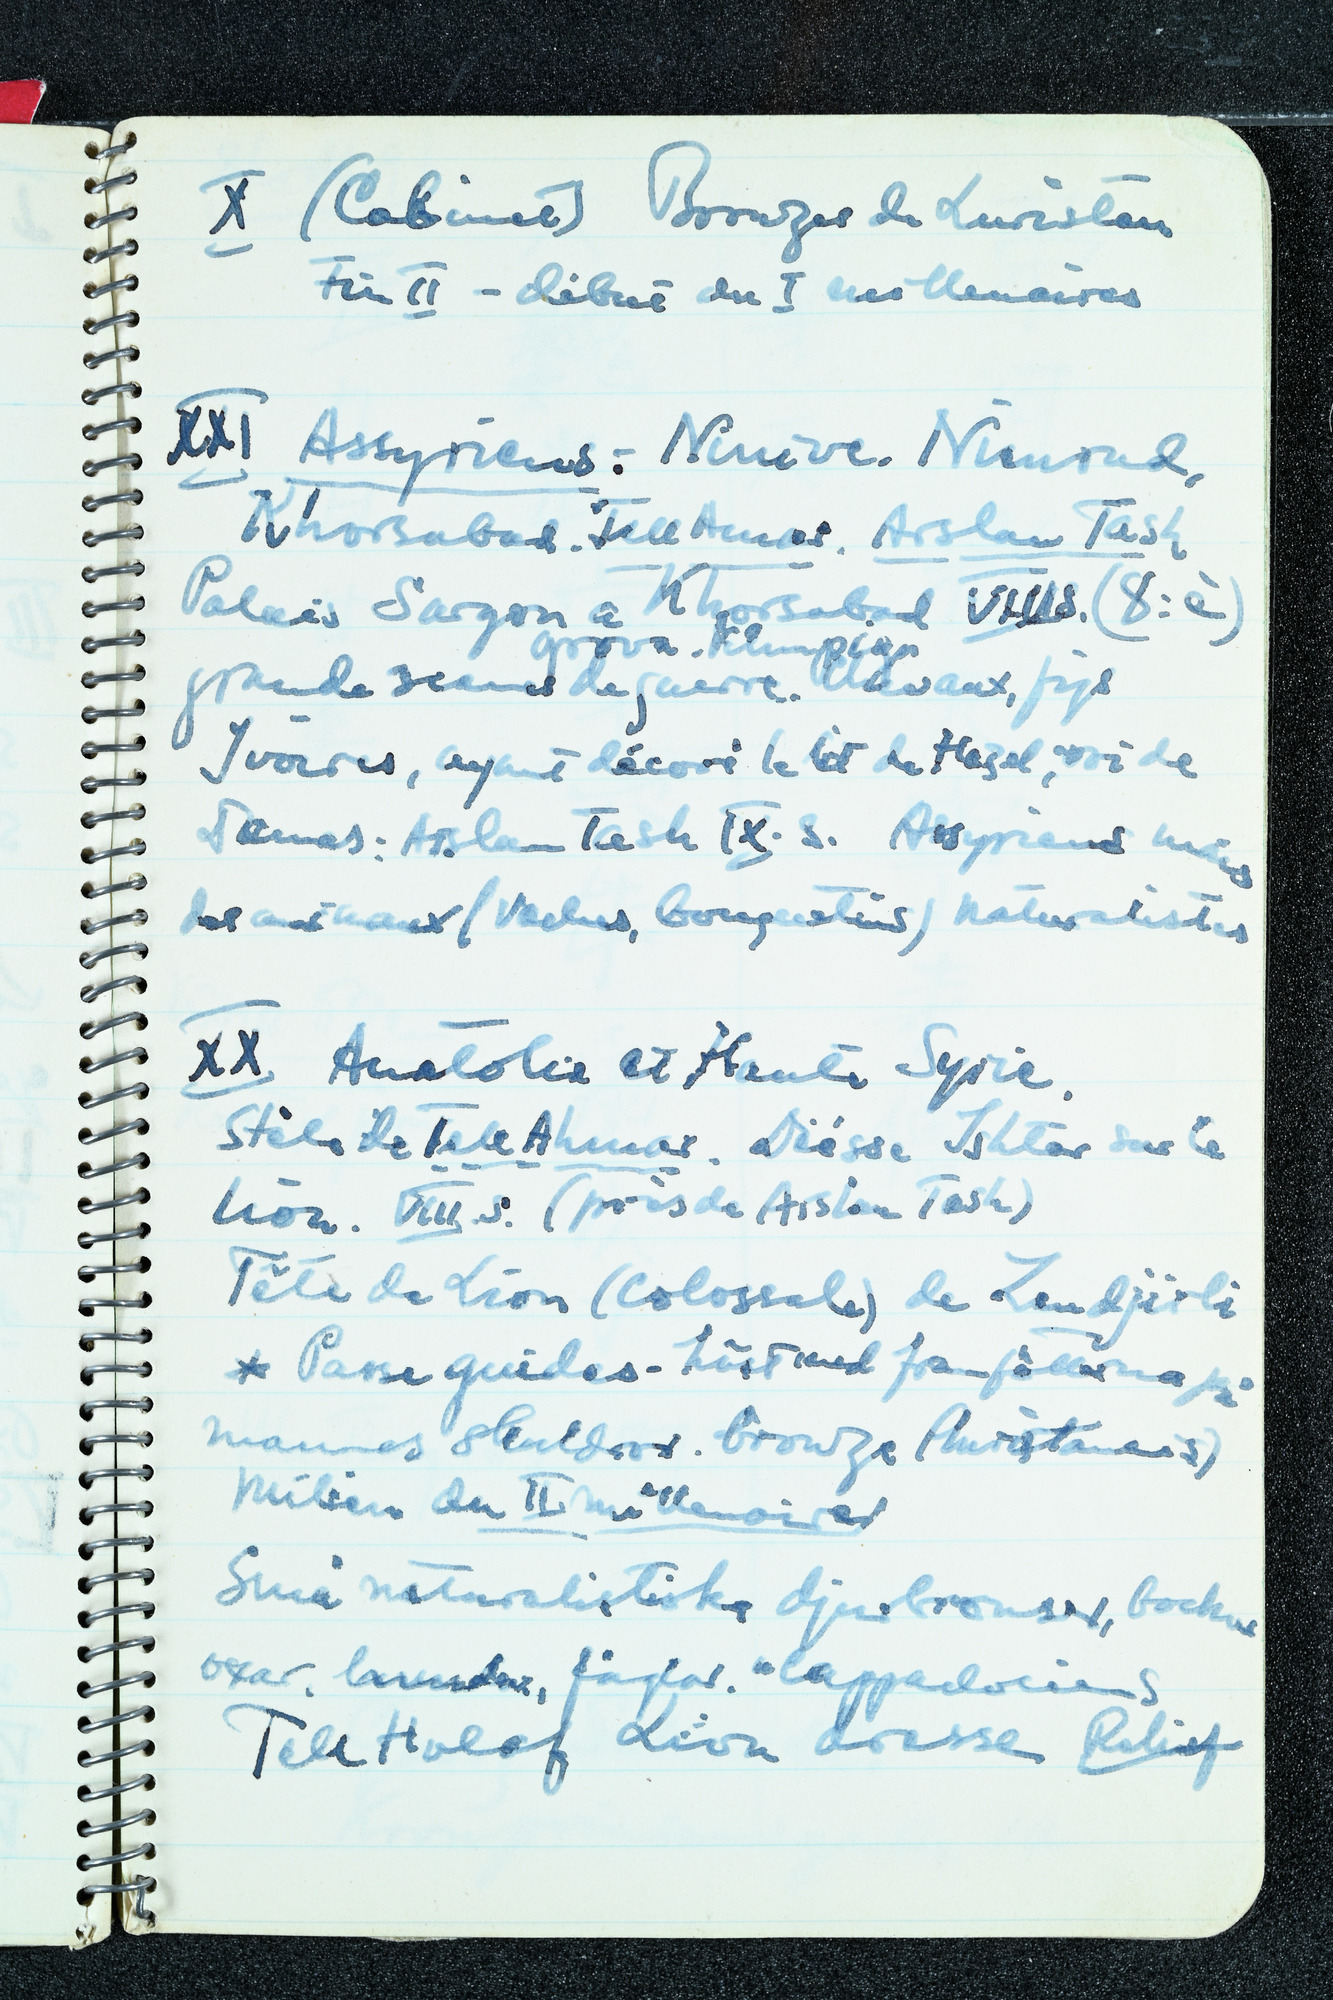 X (Cabinet) Bronzes de Luristan
Fin II - début du I millenaires
XXI Assyriens: Ninive. Nimrud,
Khorsabad. Tell Ahmar. Arslan Tash
Palais Sargon à Khorsabad VIII s. (8:è)
grova. klumpiga
grande scènes de guerre. Chevaux, figs
Ivoires, ayant décoré le lit de Hazel, roi de
Damas: Arslan Tash IX. s. Assyriens mais
des animaux (Vaches, bouquetins) naturalistes
XX Anatolie et Haute Syrie.
Stèle de Tell Ahmar. Déesse Ishtar sur le
lion. VIII. s. (près de Arslan Tash)
Tête de Lion (colossale) de Zendjirli
* Passe guides - häst med framfötterna på
mannes skuldror. bronze
Milieu du II millenaires
Små naturalistiska djurbronser, bockar
oxar, fåglar. "Cappadociens
Tell Halaf Lion dresse Relief